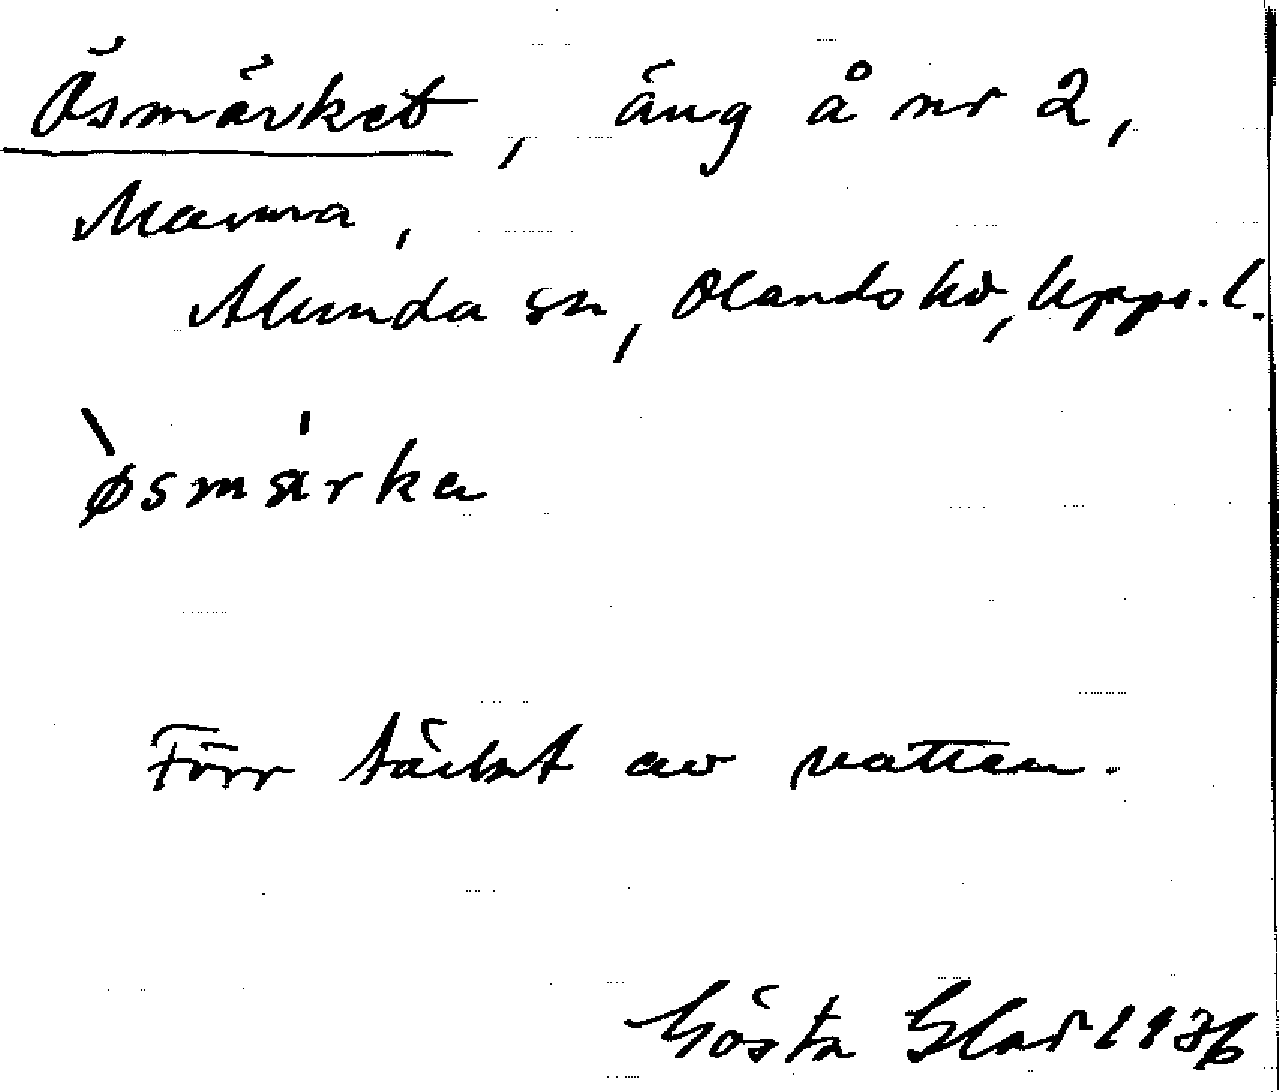 Ösmärket, äng å nr 2,
Marma,
Alunda sn, Olands hd, Upps. l.
`øsmär'ka
Förr täckt av vatten.
Gösta Glad 1936